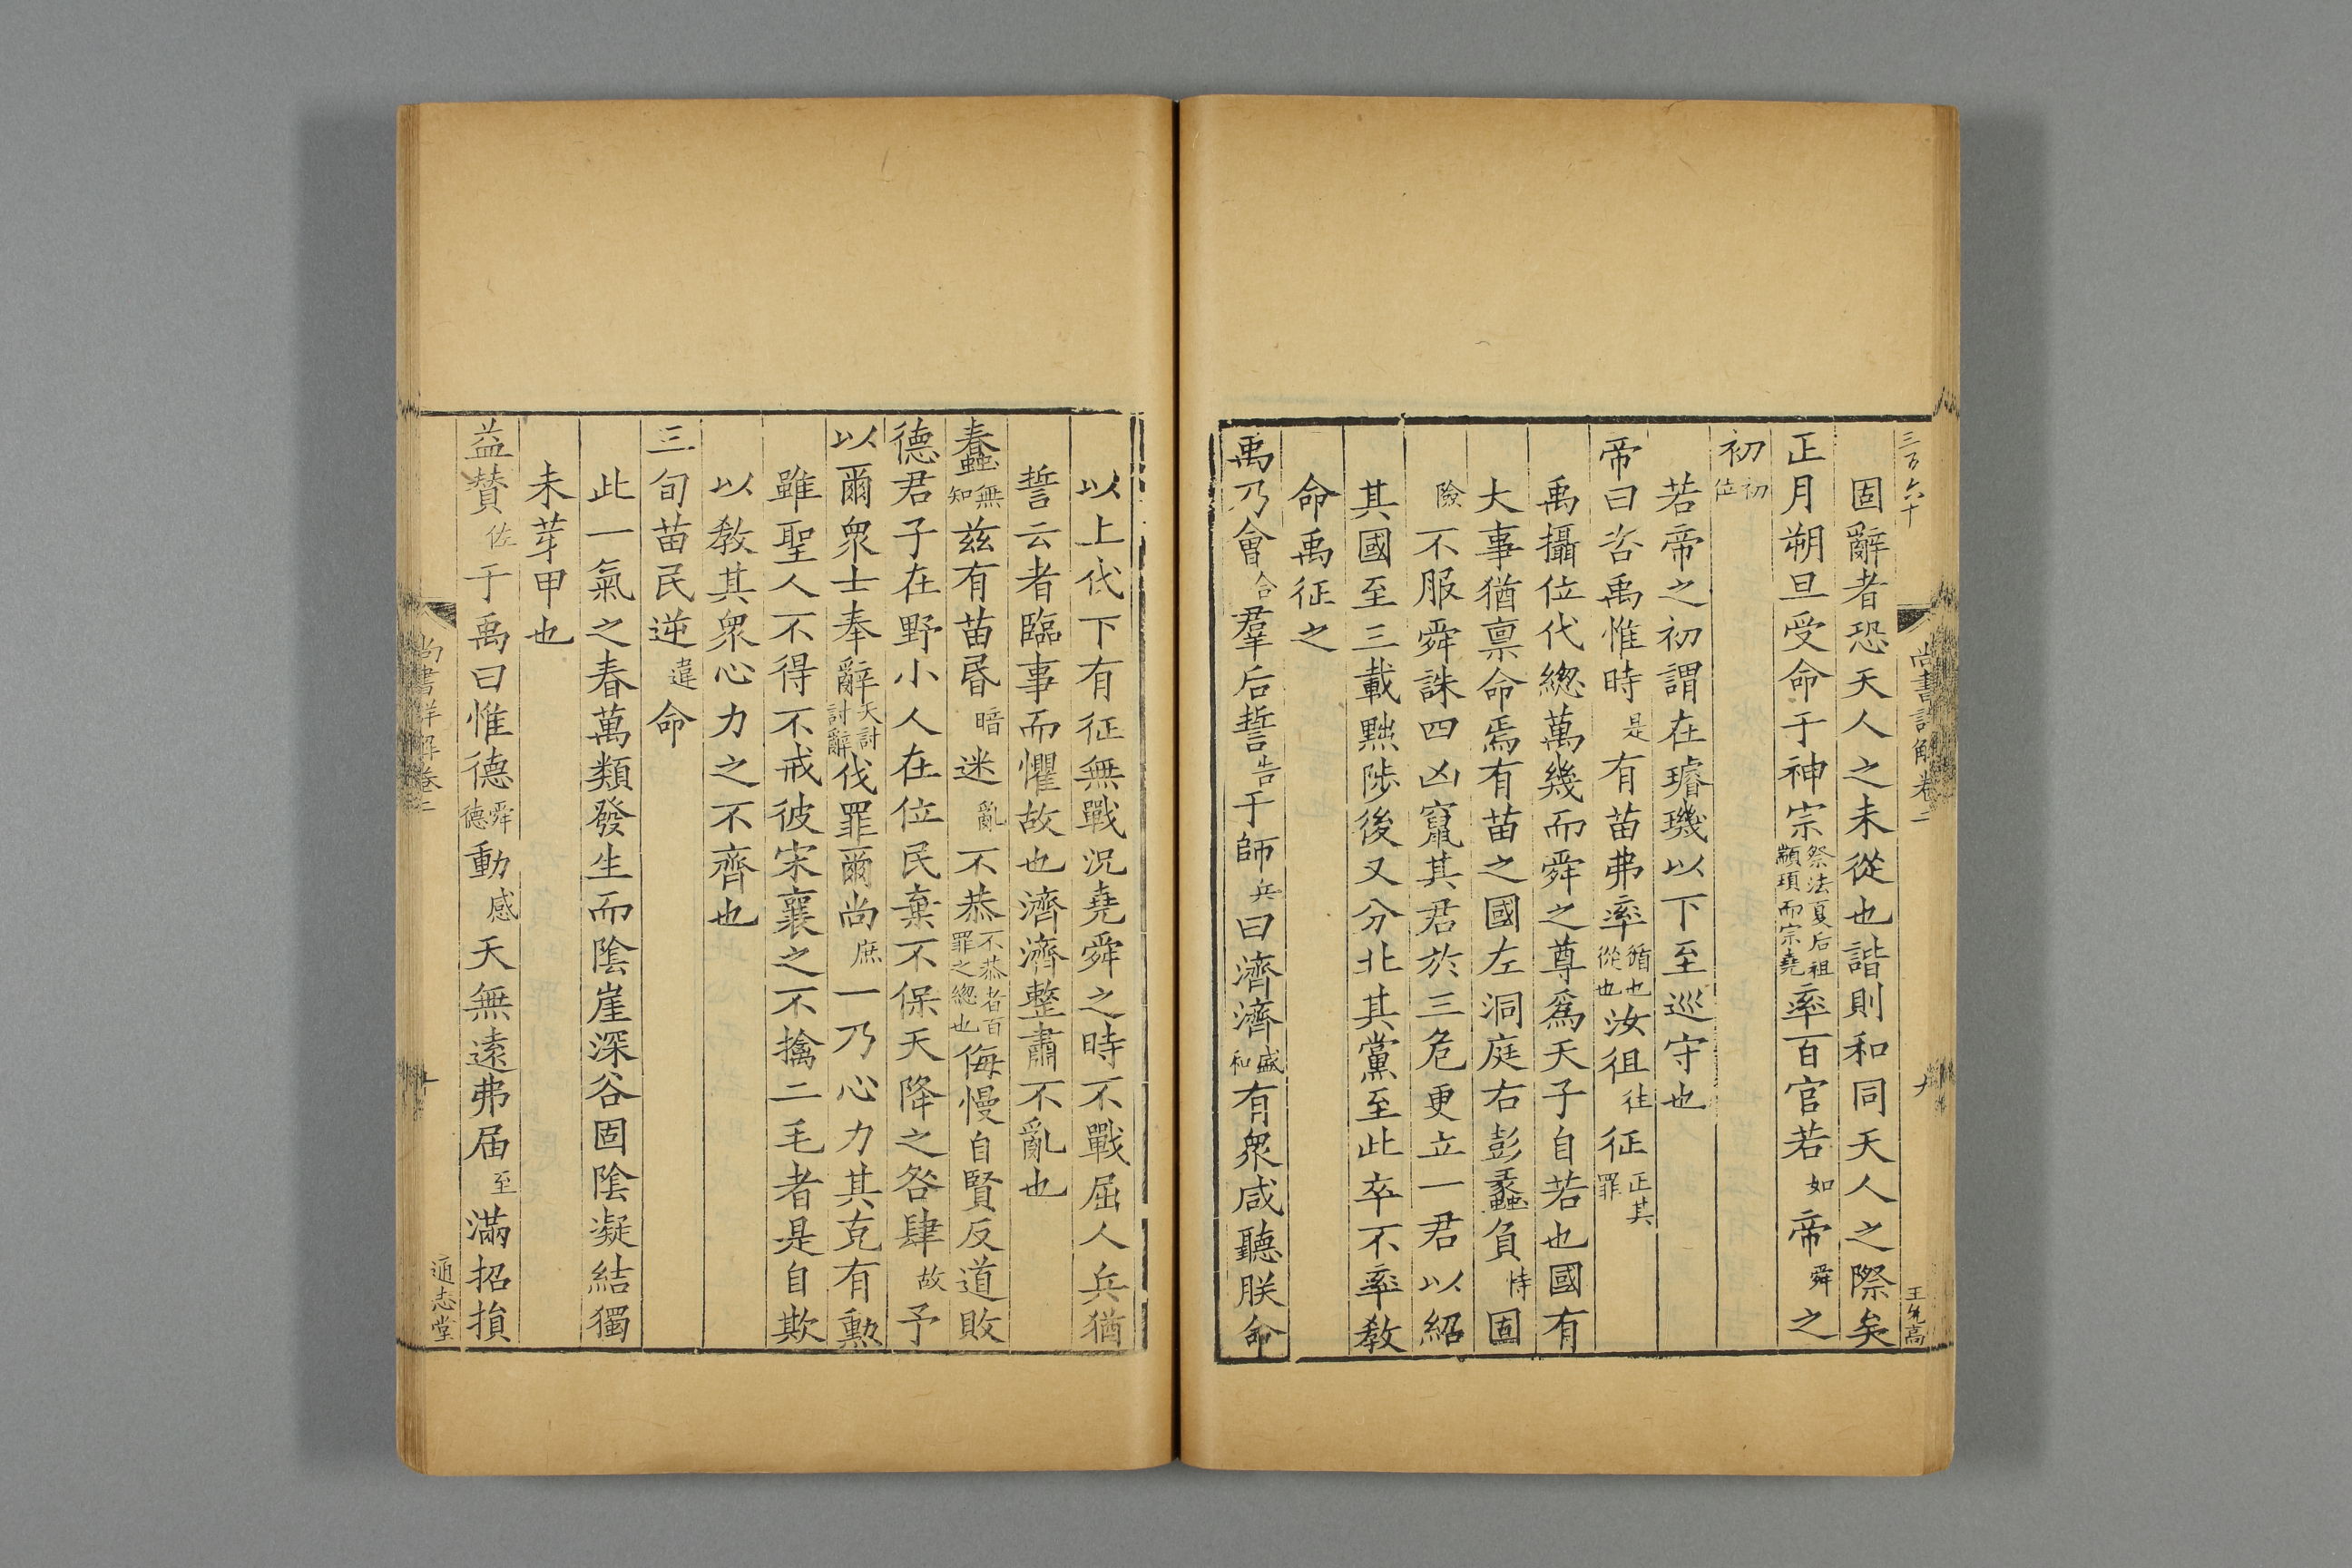 三百六十
尚書詳解卷二
九
固辭者恐天人之未從也諧則和同天人之際矣
正月朔旦受命于神宗祭法夏后祖顓頊而宗堯率百官若如帝舜之
初初位
若帝之初謂在璿璣以下至巡守也
帝曰咨禹惟時是有苗弗率循也從也汝徂往征正其罪
禹攝位代緫萬幾而舜之尊爲天子自若也國有
大事猶禀命焉有苗之國左洞庭右彭蠡負恃固
險不服舜誅四凶竄其君於三危更立一君以紹
其國至三載黜陟後又分北其黨至此卒不率教
命禹征之
禹乃會合羣后誓告于師兵曰濟濟盛和有衆咸聽朕命
以上代下有征無戰況堯舜之時不戰屈人兵猶
誓云者臨事而懼故也濟濟整肅不亂也
蠢無知茲有苗昬暗迷亂不恭不恭者百罪之緫也侮慢自賢反道敗
德君子在野小人在位民棄不保天降之咎肆故予
以爾衆士奉辭天討討辭伐罪爾尚庶一乃心力其克有勲
雖聖人不得不戒彼宋襄之不擒二毛者是自欺
以教其衆心力之不齊也
三旬苗民逆違命
此一氣之春萬類發生而陰崖深谷固陰凝結獨
未芽甲也
益贊佐于禹曰惟德舜德動感天無遠弗届至滿招損
尚書詳解卷二
通志堂